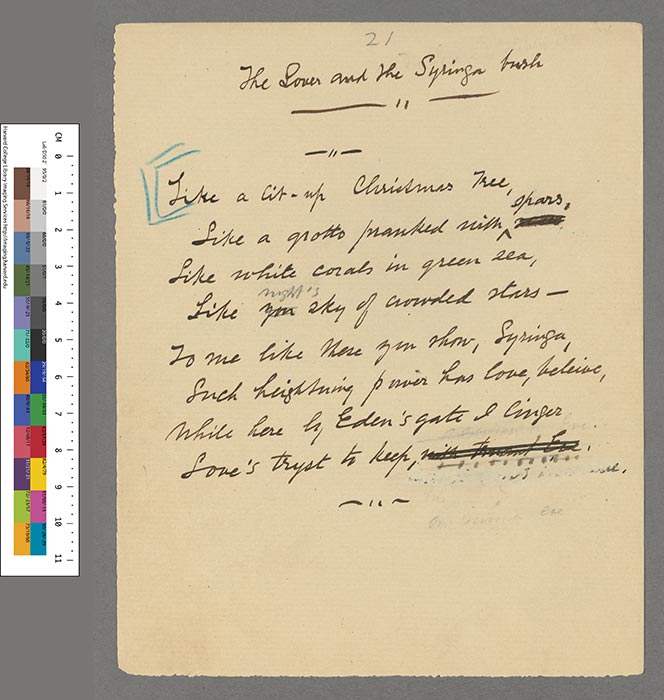 21
The Lover and the Syringa bush
Like a lit-up Christmas Tree,
spars,
Like a grotto pranked with
Like white corals in green sea,
night's
Like yon sky of crowded stars —
To me like these you show, Syringa,
Such heightning power has love, beleive,
While here by Eden's gate I linger
Love's tryst to keep, with truant Eve.
Eve
CM 0 1 2 3 4 5 6 7 8 9 10 11
Harvard College Library Imaging Services http://imaging.harvard.edu